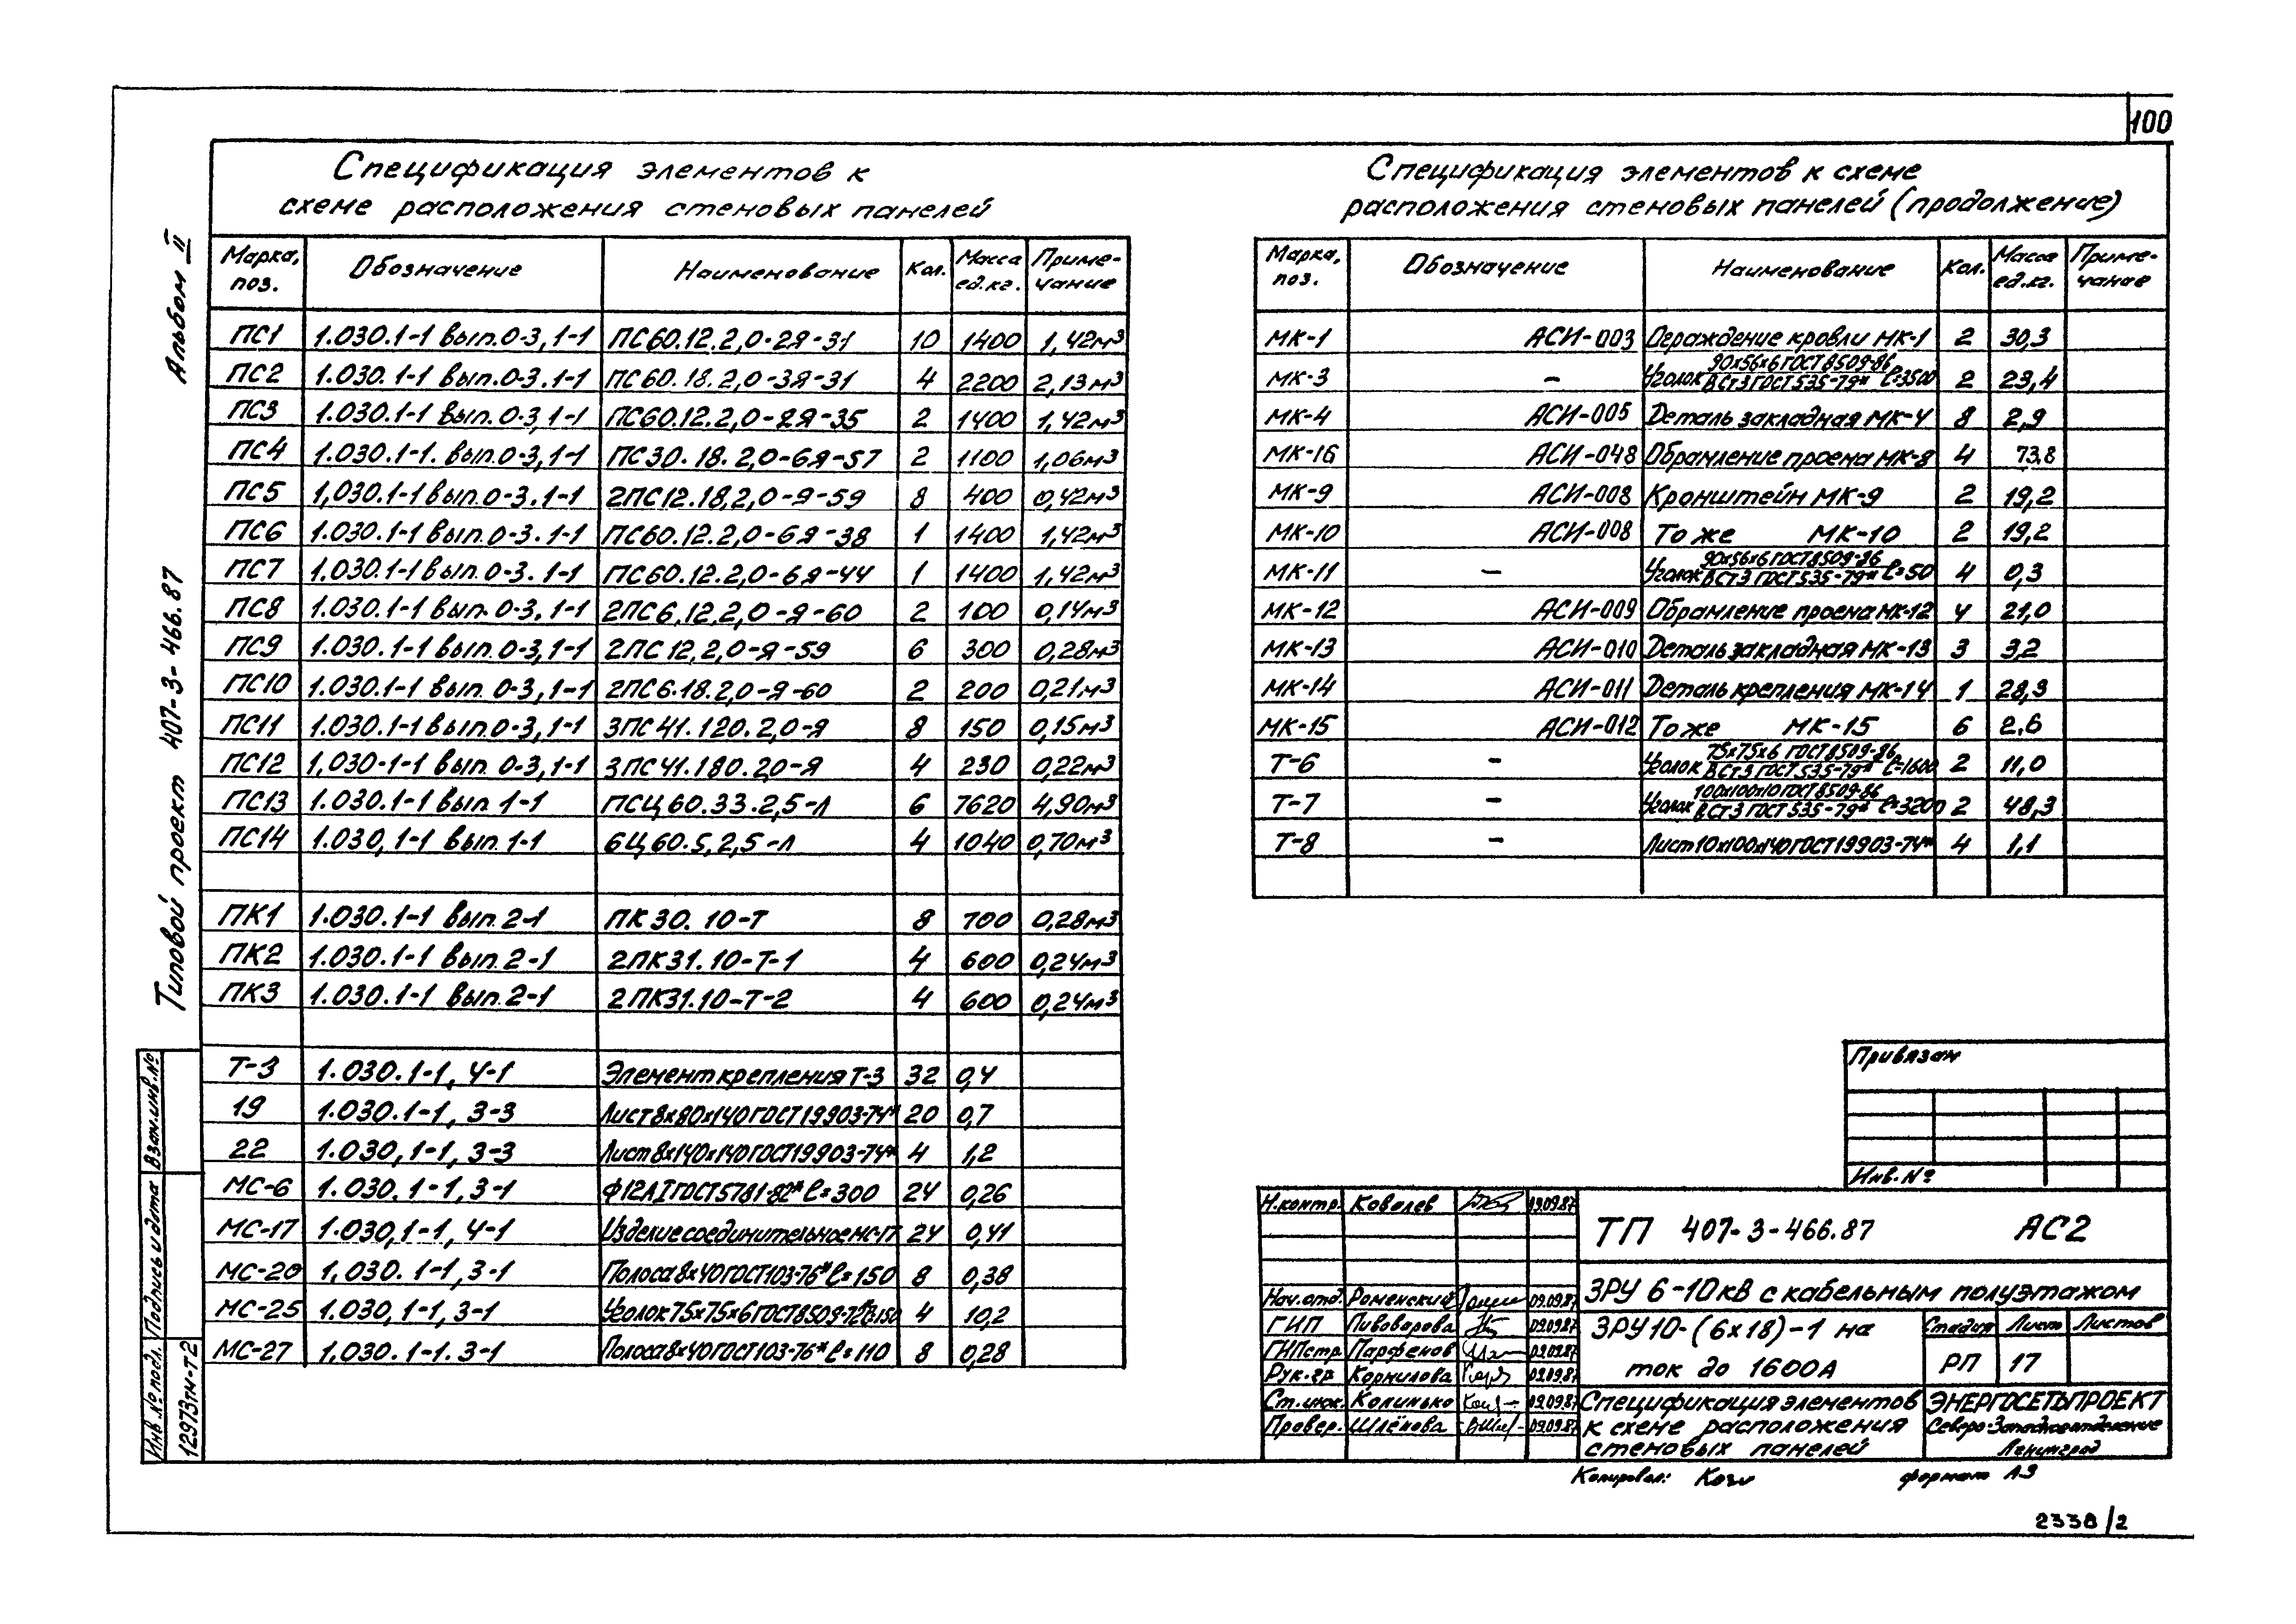 100
Спецификация элементов к
схеме расположения стеновых панелей
Марка, поз. Обозначение Наименование Кол. Масса ед.кг. Примечание
ПС1 1.030.1-1 вып.0-3,1-1 ПС60.12.2,0-2Я-31 10 1400 1,42м³
ПС2 1.030.1-1 вып.0-3.1-1 ПС60.18.2,0-3Я-31 4 2200 2,13м³
ПС3 1.030.1-1 вып.0-3,1-1 ПС60.12.2,0-2Я-35 2 1400 1,42м³
ПС4 1.030.1-1. вып.0-3,1-1 ПС30.18.2,0-6Я-57 2 1100 1,06м³
ПС5 1,030.1-1 вып.0-3.1-1 2ПС12.18,2,0-Я-59 8 400 0,42м³
ПС6 1.030.1-1 вып.0-3.1-1 ПС60.12.2,0-6Я-38 1 1400 1,42м³
ПС7 1.030.1-1 вып.0-3.1-1 ПС60.12.2,0-6Я-44 1 1400 1,42м³
ПС8 1.030.1-1 вып.0-3.1-1 2ПС6.12.2,0-Я-60 2 100 0,14м³
ПС9 1.030.1-1 вып.0-3,1-1 2ПС12.2,0-Я-59 6 300 0,28м³
ПС10 1.030.1-1 вып.0-3,1-1 2ПС6.18.2,0-Я-60 2 200 0,21м³
ПС11 1.030.1-1 вып.0-3,1-1 3ПС41.120.2,0-Я 8 150 0,15м³
ПС12 1,030-1-1 вып 0-3,1-1 3ПС41.180.2.0-Я 4 230 0,22м³
ПС13 1.030.1-1 вып 1-1 ПСЦ60.33.2,5-Л 6 7620 4,90м³
ПС14 1.030,1-1 вып.1-1 6Ц60.5,2,5-Л 4 1040 0,70м³
ПК1 1.030.1-1 вып.2-1 ПК30.10-Т 8 700 0,28м³
ПК2 1.030.1-1 вып.2-1 2ПК31.10-Т-1 4 600 0,24м³
ПК3 1.030.1-1 вып.2-1 2ПК31.10-Т-2 4 600 0,24м³
Т-3 1.030.1-1, 4-1 Элемент крепления Т-3 32 0,4
19 1.030.1-1, 3-3 Лист 8х80х140 ГОСТ 19903-74* 20 0,7
22 1.030,1-1, 3-3 Лист 8х140х140 ГОСТ 19903-74* 4 1,2
МС-6 1.030.1-1,3-1 ф12АI ГОСТ 5781-82* ℓ=300 24 0,26
МС-17 1.030,1-1, 4-1 Изделие соединительное МС-17 24 0,41
МС-20 1,030.1-1,3-1 Полоса 8х40 ГОСТ 103-76* ℓ=150 8 0,38
МС-25 1.030,1-1,3-1 Уголок 75х75х6 ГОСТ 8509-72* ℓ=150 4 10,2
МС-27 1.030.1-1.3-1 Полоса 8х40 ГОСТ 103-76* ℓ=110 8 0,28
Спецификация элементов к схеме
расположения стеновых панелей (продолжение)
Марка, поз. Обозначение Наименование Кол. Масса ед.кг. Примечание
МК-1 АСИ-003 Ограждение кровли МК-1 2 30,3
МК-3 - Уголок 90х56х6 ГОСТ 8509-86 / ВСт3 ГОСТ 535-79* ℓ=3500 2 23,4
МК-4 АСИ-005 Деталь закладная МК-4 8 2,9
МК-16 АСИ-048 Обрамление проема МК-8 4 73.8
МК-9 АСИ-008 Кронштейн МК-9 2 19,2
МК-10 АСИ-008 То же МК-10 2 19,2
МК-11 - Уголок 90х56х6 ГОСТ 8509-86 / ВСт3 ГОСТ 535-79* ℓ=50 4 0,3
МК-12 АСИ-009 Обрамление проема МК-12 4 21,0
МК-13 АСИ-010 Деталь закладная МК-13 3 3,2
МК-14 АСИ-011 Деталь крепления МК-14 1 28,3
МК-15 АСИ-012 То же МК-15 6 2.6
Т-6 - Уголок 75х75х6 ГОСТ 8509-86 / ВСт3 ГОСТ 535-79* ℓ=1600 2 11,0
Т-7 - Уголок 100х100х10 ГОСТ 8509-86 / ВСт3 ГОСТ 535-79* ℓ=3200 2 48,3
Т-8 - Лист 10х100х140 ГОСТ 19903-74* 4 1,1
Альбом II
Типовой проект 407-3-466.87
Взам.инв.№
Подпись и дата
Инв.№ подл.
12973тм-т2
Привязан
Инв.№
Н.контр. Ковалев 09.09.87
Нач.отд. Роменский 09.09.87
ГИП Пивоварова 09.09.87
ГИПстр. Парфенов 09.09.87
Рук.гр. Корнилова 09.09.87
Ст.инж. Колинько 09.09.87
Провер. Шлёнова 09.09.87
ТП 407-3-466.87 АС2
ЗРУ 6-10кВ с кабельным полуэтажом
ЗРУ10-(6х18)-1 на
ток до 1600А
Стадия Лист Листов
РП 17
Спецификация элементов
к схеме расположения
стеновых панелей
ЭНЕРГОСЕТЬПРОЕКТ
Северо-Западное отделение
Ленинград
Копировал: формат А3
2338/2